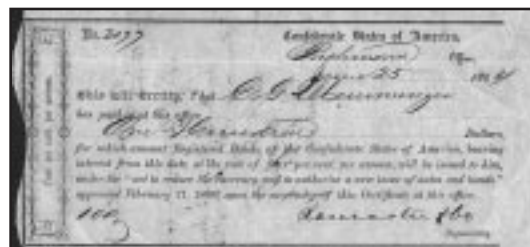 No. 3077 Confederate States of America,
Richmond Office,
25 1864
This will Certify, That C. G. Memminger
has paid in at this office
One Hundred Dollars,
for which amount Registered Bonds, of the Confederate States of America, bearing
interest from this date, at the rate of four per cent. per annum, will be issued to him,
under the "act to reduce the currency and to authorize a new issue of notes and bonds,"
approved February 17, 1864, upon the surrender of this Certificate at this office.
100 & Co
Depositary.
Four per cent. per annum.